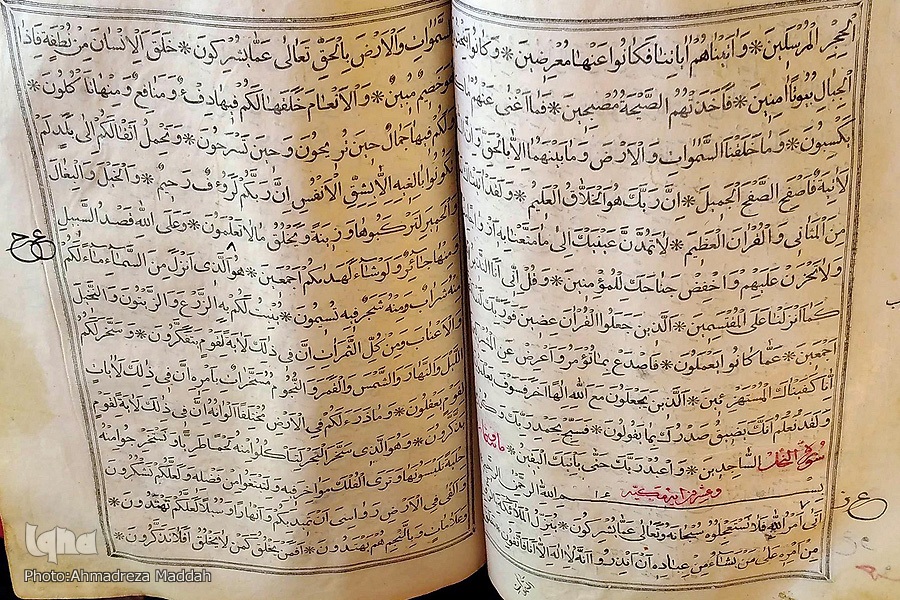 الْحِجْرِ الْمُرْسَلِينَ * وَآتَيْنَاهُمْ آيَاتِنَا فَكَانُوا عَنْهَا مُعْرِضِينَ * وَكَانُوا
الْجِبَالِ بُيُوتًا آمِنِينَ * فَأَخَذَتْهُمُ الصَّيْحَةُ مُصْبِحِينَ * فَمَا أَغْنَى عَنْهُمْ مَا
يَكْسِبُونَ * وَمَا خَلَقْنَا السَّمٰوَاتِ وَالْأَرْضَ وَمَا بَيْنَهُمَا إِلَّا بِالْحَقِّ وَإِنَّ
لَآتِيَةٌ فَاصْفَحِ الصَّفْحَ الْجَمِيلَ * إِنَّ رَبَّكَ هُوَ الْخَلَّاقُ الْعَلِيمُ * وَلَقَدْ
مِنَ الْمَثَانِي وَالْقُرْآنَ الْعَظِيمَ * لَا تَمُدَّنَّ عَيْنَيْكَ إِلَى مَا مَتَّعْنَا بِهِ
وَلَا تَحْزَنْ عَلَيْهِمْ وَاخْفِضْ جَنَاحَكَ لِلْمُؤْمِنِينَ * وَقُلْ إِنِّي أَنَا
كَمَا أَنْزَلْنَا عَلَى الْمُقْتَسِمِينَ * الَّذِينَ جَعَلُوا الْقُرْآنَ عِضِينَ فَوَرَبِّكَ
أَجْمَعِينَ * عَمَّا كَانُوا يَعْمَلُونَ * فَاصْدَعْ بِمَا تُؤْمَرُ وَأَعْرِضْ عَنِ
إِنَّا كَفَيْنَاكَ الْمُسْتَهْزِئِينَ * الَّذِينَ يَجْعَلُونَ مَعَ اللَّهِ إِلٰهًا آخَرَ فَسَوْفَ
وَلَقَدْ نَعْلَمُ أَنَّكَ يَضِيقُ صَدْرُكَ بِمَا يَقُولُونَ * فَسَبِّحْ بِحَمْدِ رَبِّكَ وَكُنْ
السَّاجِدِينَ * وَاعْبُدْ رَبَّكَ حَتَّى يَأْتِيَكَ الْيَقِينُ * سُورَةُ النَّحْلِ
بِسْمِ اللَّهِ الرَّحْمٰنِ الرَّحِيمِ
أَتَى أَمْرُ اللَّهِ فَلَا تَسْتَعْجِلُوهُ سُبْحَانَهُ وَتَعَالَى عَمَّا يُشْرِكُونَ * يُنَزِّلُ الْمَلَائِكَةَ
مِنْ أَمْرِهِ عَلَى مَنْ يَشَاءُ مِنْ عِبَادِهِ أَنْ أَنْذِرُوا أَنَّهُ لَا إِلٰهَ إِلَّا أَنَا فَاتَّقُونِ
السَّمٰوَاتِ وَالْأَرْضَ بِالْحَقِّ تَعَالَى عَمَّا يُشْرِكُونَ * خَلَقَ الْإِنْسَانَ مِنْ نُطْفَةٍ فَإِذَا
هُوَ خَصِيمٌ مُبِينٌ * وَالْأَنْعَامَ خَلَقَهَا لَكُمْ فِيهَا دِفْءٌ وَمَنَافِعُ وَمِنْهَا تَأْكُلُونَ *
وَلَكُمْ فِيهَا جَمَالٌ حِينَ تُرِيحُونَ وَحِينَ تَسْرَحُونَ * وَتَحْمِلُ أَثْقَالَكُمْ إِلَى بَلَدٍ لَمْ
تَكُونُوا بَالِغِيهِ إِلَّا بِشِقِّ الْأَنْفُسِ إِنَّ رَبَّكُمْ لَرَؤُفٌ رَحِيمٌ * وَالْخَيْلَ وَالْبِغَالَ
وَالْحَمِيرَ لِتَرْكَبُوهَا وَزِينَةً وَيَخْلُقُ مَا لَا تَعْلَمُونَ * وَعَلَى اللَّهِ قَصْدُ السَّبِيلِ
وَمِنْهَا جَائِرٌ وَلَوْ شَاءَ لَهَدٰىكُمْ أَجْمَعِينَ * هُوَ الَّذِي أَنْزَلَ مِنَ السَّمَاءِ مَاءً لَكُمْ
مِنْهُ شَرَابٌ وَمِنْهُ شَجَرٌ فِيهِ تُسِيمُونَ * يُنْبِتُ لَكُمْ بِهِ الزَّرْعَ وَالزَّيْتُونَ وَالنَّخِيلَ
وَالْأَعْنَابَ وَمِنْ كُلِّ الثَّمَرَاتِ إِنَّ فِي ذٰلِكَ لَآيَةً لِقَوْمٍ يَتَفَكَّرُونَ * وَسَخَّرَ لَكُمُ
اللَّيْلَ وَالنَّهَارَ وَالشَّمْسَ وَالْقَمَرَ وَالنُّجُومُ مُسَخَّرَاتٌ بِأَمْرِهِ إِنَّ فِي ذٰلِكَ لَآيَاتٍ
لِقَوْمٍ يَعْقِلُونَ * وَمَا ذَرَأَ لَكُمْ فِي الْأَرْضِ مُخْتَلِفًا أَلْوَانُهُ إِنَّ فِي ذٰلِكَ لَآيَةً لِقَوْمٍ
يَذَّكَّرُونَ * وَهُوَ الَّذِي سَخَّرَ الْبَحْرَ لِتَأْكُلُوا مِنْهُ لَحْمًا طَرِيًّا وَتَسْتَخْرِجُوا مِنْهُ
حِلْيَةً تَلْبَسُونَهَا وَتَرَى الْفُلْكَ مَوَاخِرَ فِيهِ وَلِتَبْتَغُوا مِنْ فَضْلِهِ وَلَعَلَّكُمْ تَشْكُرُونَ *
وَأَلْقَى فِي الْأَرْضِ رَوَاسِيَ أَنْ تَمِيدَ بِكُمْ وَأَنْهَارًا وَسُبُلًا لَعَلَّكُمْ تَهْتَدُونَ *
وَعَلَامَاتٍ وَبِالنَّجْمِ هُمْ يَهْتَدُونَ * أَفَمَنْ يَخْلُقُ كَمَنْ لَا يَخْلُقُ أَفَلَا تَذَكَّرُونَ *
iqna
Photo:Ahmadreza Maddah